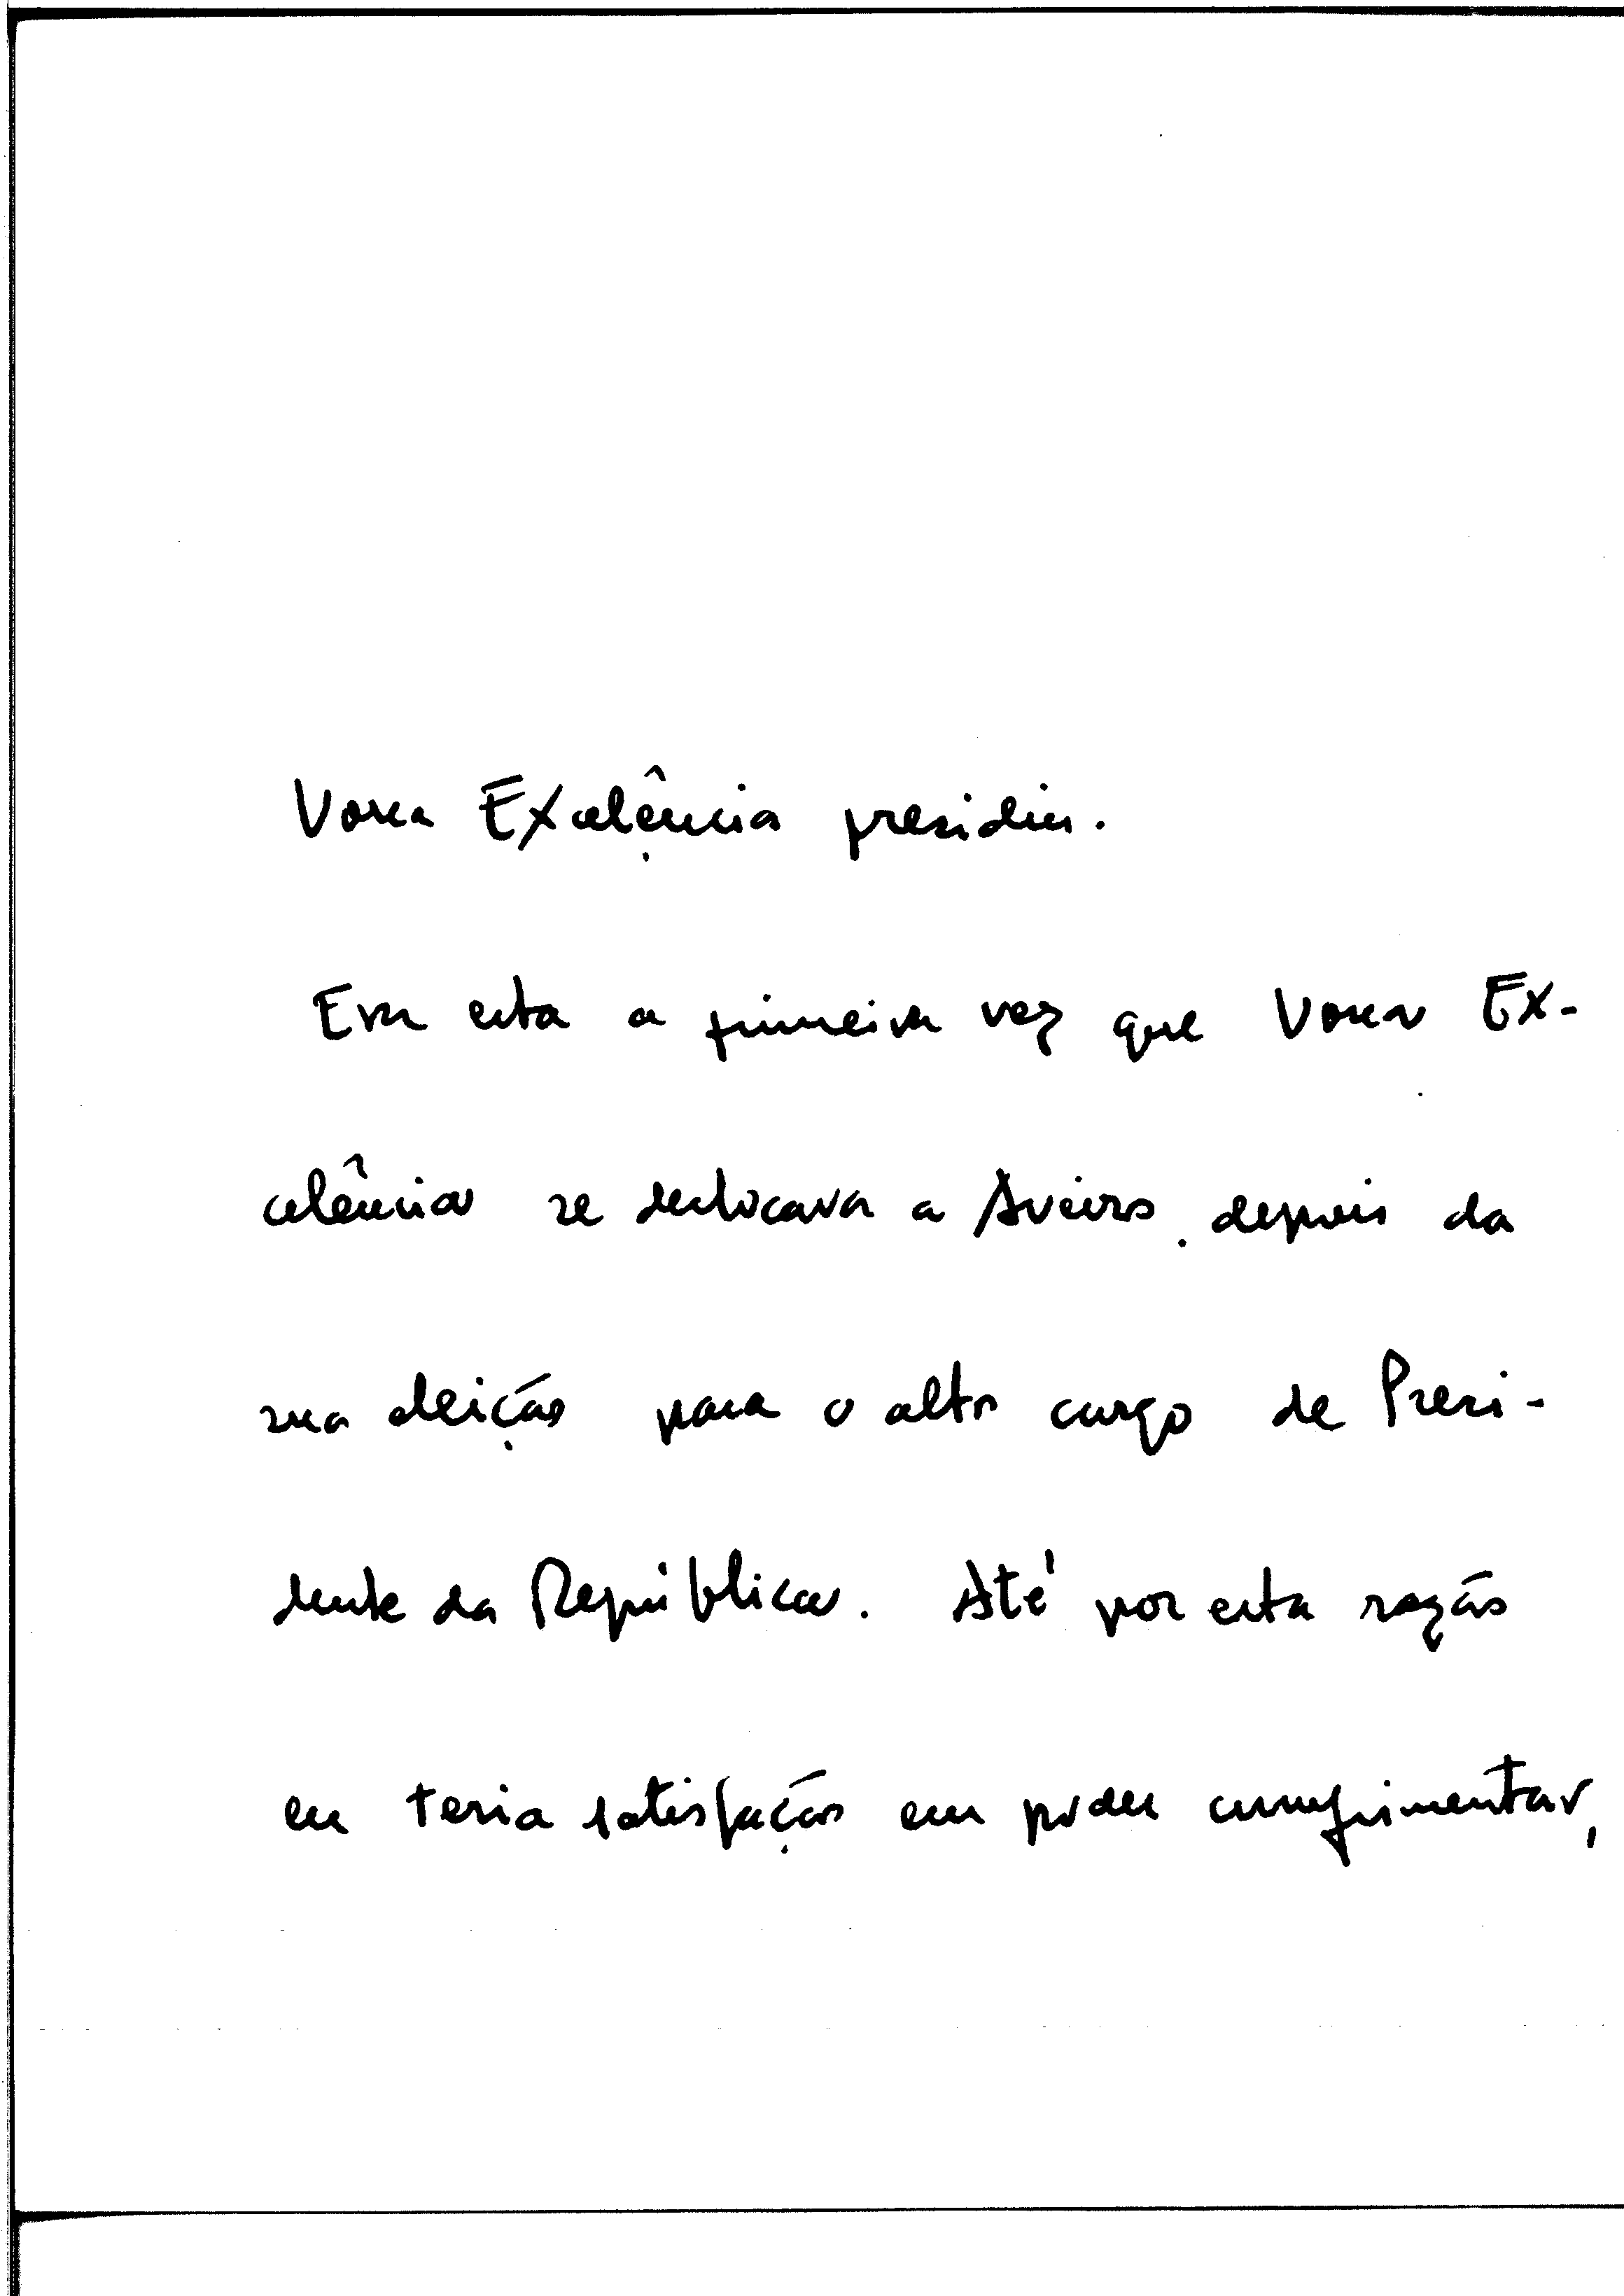 Vossa Excelência presidiu.
Era esta a primeira vez que Vossa Ex-
celência se deslocava a Aveiro depois da
sua eleição para o alto cargo de Presi-
dente da República. Até por esta razão
eu teria satisfação em poder cumprimentar,